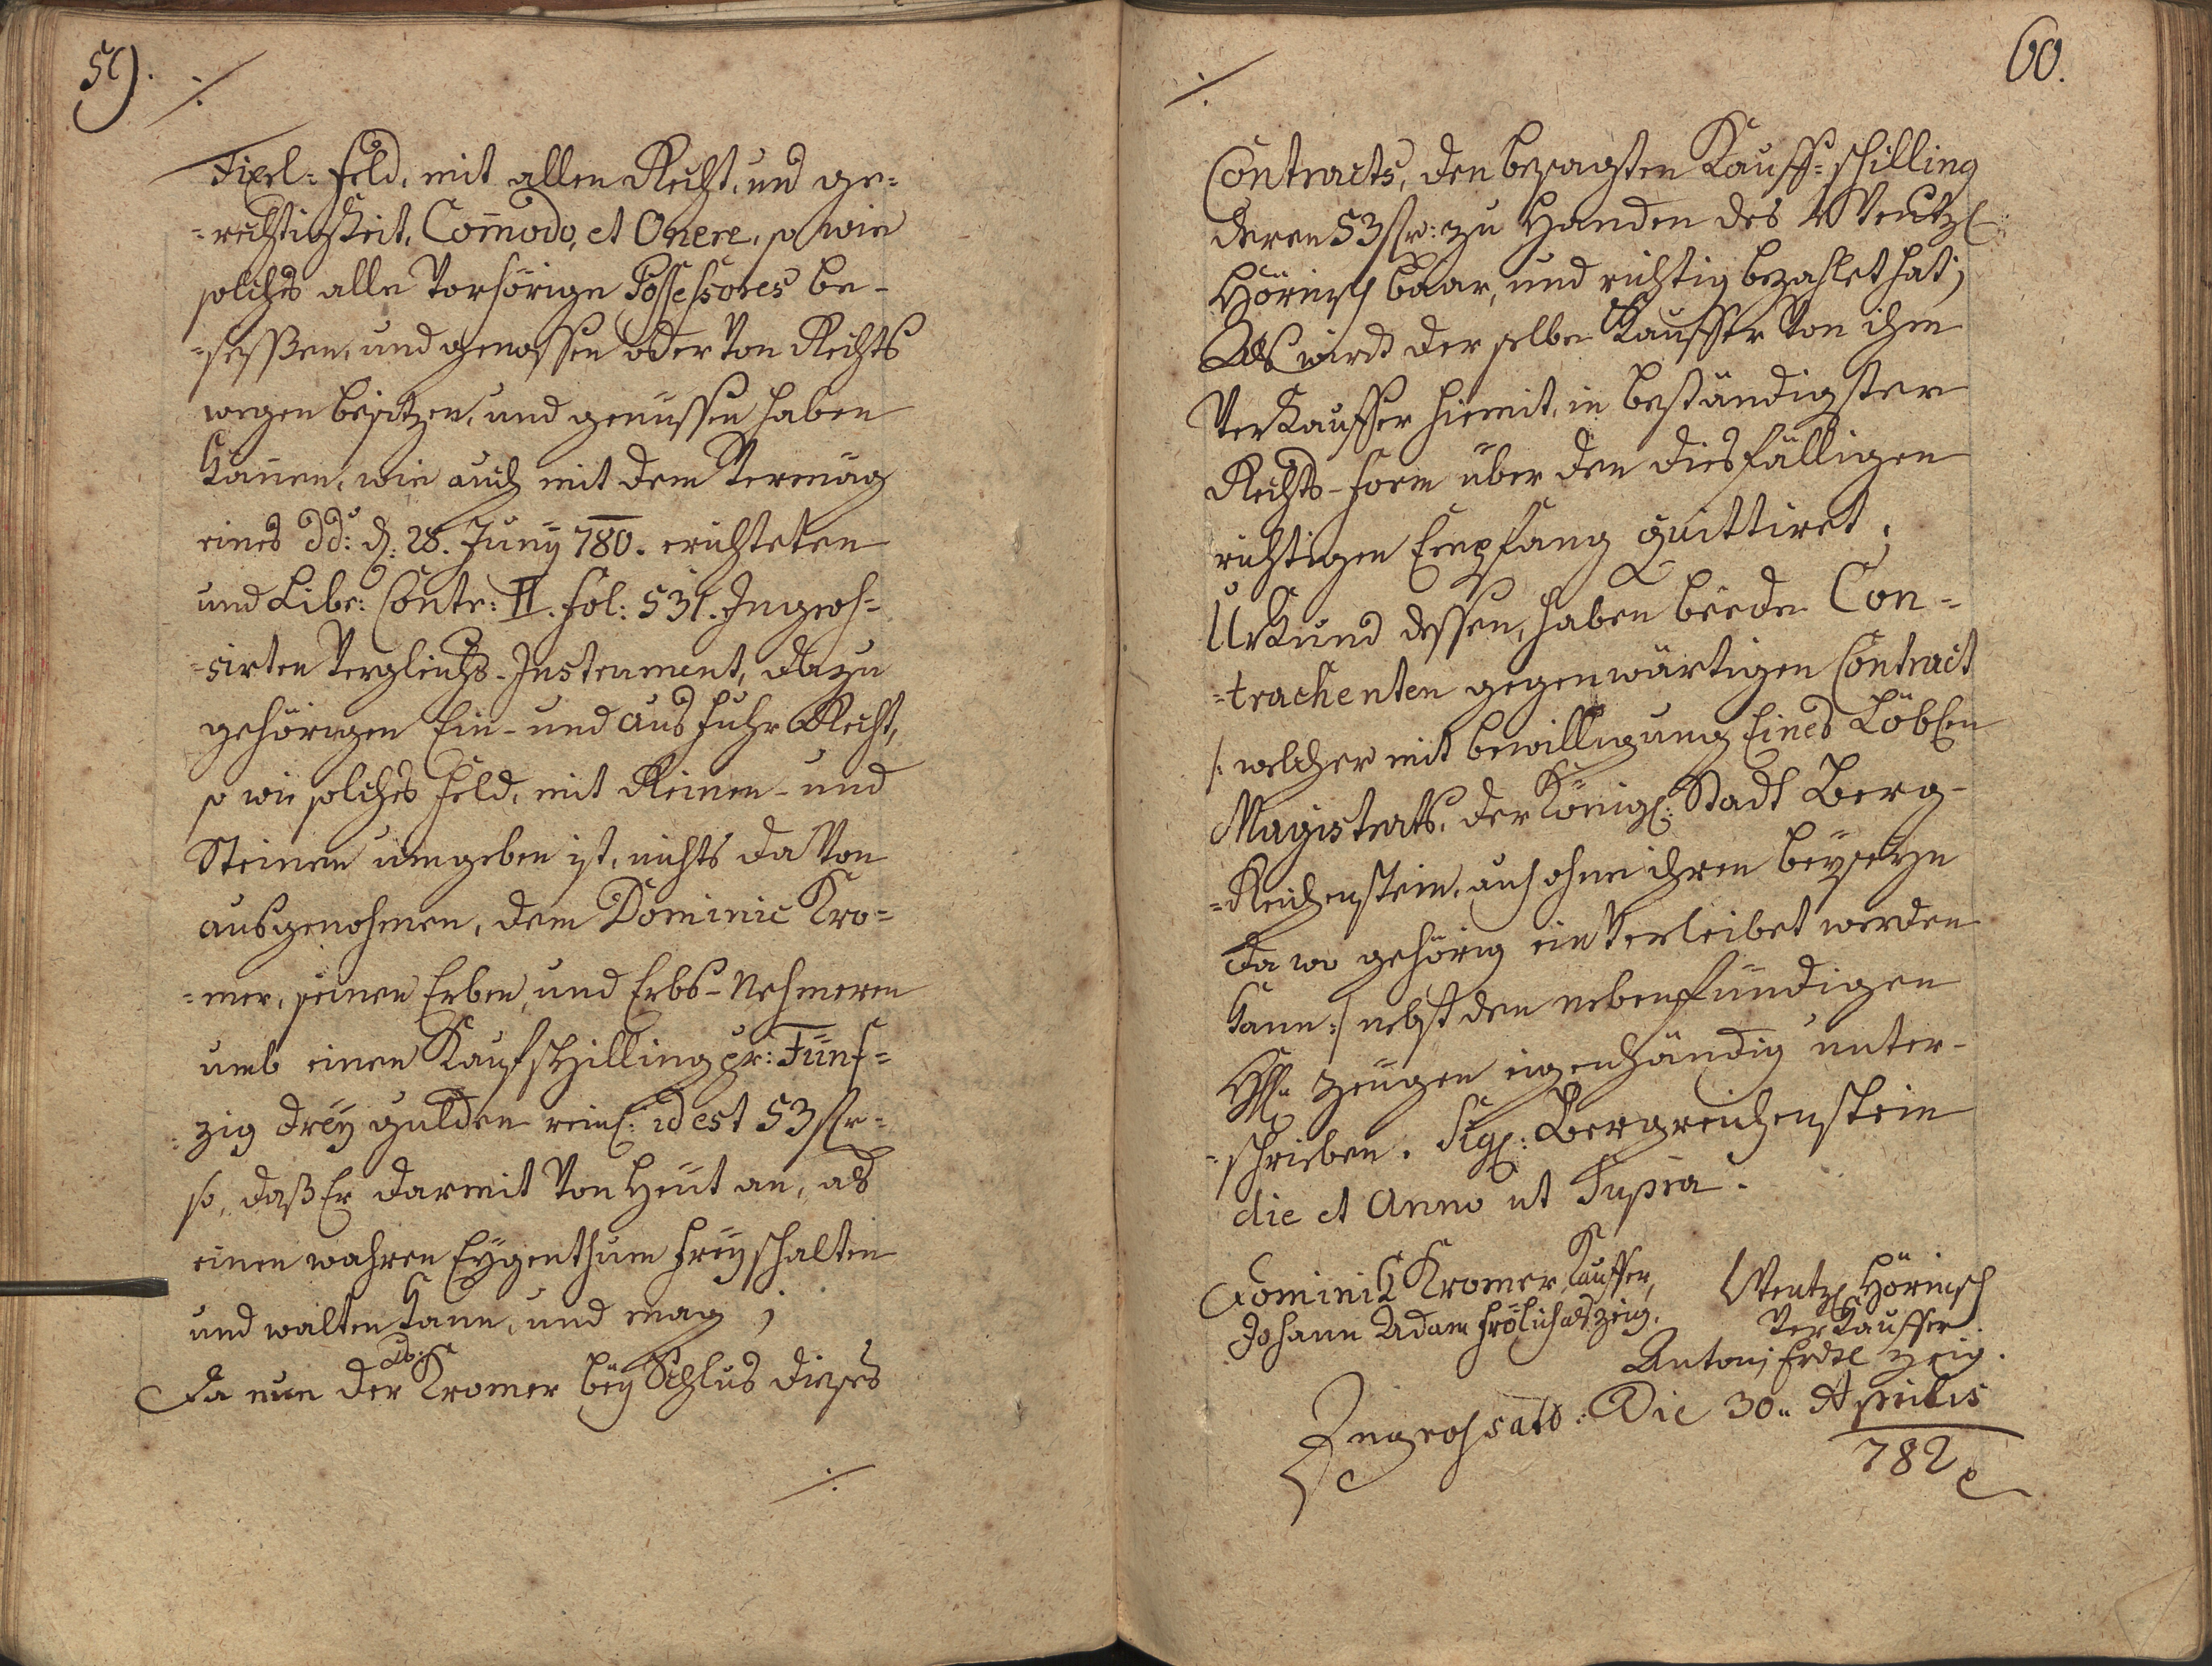 59.
./.
Fixel-Feld, mit allen Recht, und ge=
=rechtigkeit, Com̄odo, et Onere, so wie
solches alle vorhörige Possessores be-
=sessßen, und genossen oder von Rechts
wegen besitzen, und genüssen haben
können, wie auch mit dem Vermög
eines dd: d: 28. Juny 780. erichteten
und Libr: Contr: II. fol: 531. Ingros=
=sirten Vergleichs-Instrument, dazu
gehörigen Ein- und Ausfuhr Recht,
so wie solches Feld, mit Reinen- und
Steinen umgeben ist, nichts davon
ausgenohmen, dem Dominic Kro=
=mer, seinen Erben, und Erbs-Nehmeren
umb einen Kaufschilling pr: Fünf=
=zig drey gulden reinl: id est 53 fr:
so, daß Er darmit von Heut an, als
einen wahren Eygenthum frey schalten
und walten kann, und mag;
Da nun der Kromer bey Schlus dieses
./.
60.
./.
Contracts, den besagten Kauff-schilling
deren 53 fr: zu Handen des Wentzl
Hörnisch baar, und richtig bezahlet hat;
Als wird derselbe Kauffer von ihm
Verkauffer hiemit, in beständigster
Rechts-Form über den diesfälligen
richtigen Empfang quittiret;
Urkund dessen, haben beede Con=
=trachenten gegenwärtigen Contract
/: welcher mit bewilligung Eines Löblen
Magistrats, der Königl: Stadt Berg-
=Reichenstein, auch ohne ihren beyseyn
da wo gehörig einverleibet werden
kann :/ nebst den nebenfündigen
H̄. Zeugen eigenhändig unter-
=schrieben. Sigl: Bergreichenstein
die et Anno ut Supra.
Dominik Kromer, Kauffer, Wentzl Hörnisch
Johann Adam Frölich als Zeig. Verkauffer
Antonj Erdtl Zeig.
Ingrossatō: Die 30. Aprilis
782